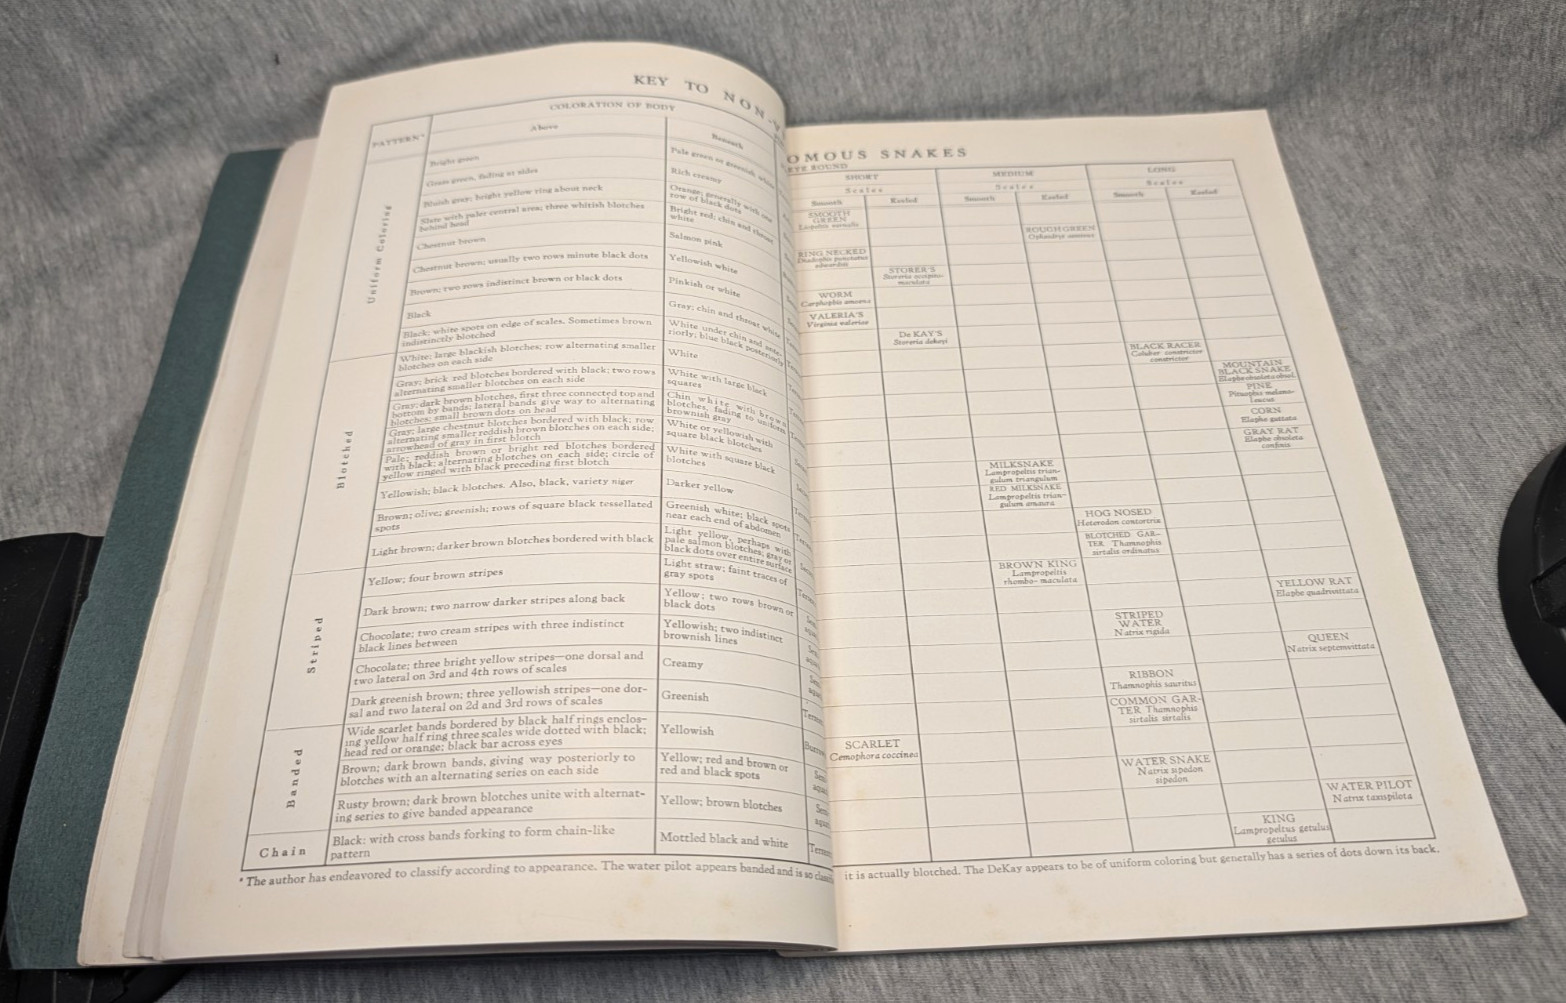 KEY TO NON-V
COLORATION OF BODY
PATTERN*
Above
Beneath
Uniform Coloring
Bright green
Pale green or greenish white
Grass green, fading at sides
Rich creamy
Bluish gray; bright yellow ring about neck
Orange; generally with one
row of black dots
Slate with paler central area; three whitish blotches
behind head
Bright red; chin and throat
white
Chestnut brown
Salmon pink
Chestnut brown; usually two rows minute black dots
Yellowish white
Brown; two rows indistinct brown or black dots
Pinkish or white
Black
Gray; chin and throat white
Black; white spots on edge of scales. Sometimes brown
indistinctly blotched
White under chin and ante-
riorly; blue black posteriorly
Blotched
White; large blackish blotches; row alternating smaller
blotches on each side
White
Gray; brick red blotches bordered with black; two rows
alternating smaller blotches on each side
White with large black
squares
Gray; dark brown blotches, first three connected top and
bottom by bands; lateral bands give way to alternating
blotches; small brown dots on head
Chin white with brown
blotches, fading to uniform
brownish gray
Gray; large chestnut blotches bordered with black; row
alternating smaller reddish brown blotches on each side;
arrowhead of gray in first blotch
White or yellowish with
square black blotches
Pale; reddish brown or bright red blotches bordered
with black; alternating blotches on each side; circle of
yellow ringed with black preceding first blotch
White with square black
blotches
Yellowish; black blotches. Also, black, variety niger
Darker yellow
Brown; olive; greenish; rows of square black tessellated
spots
Greenish white; black spots
near each end of abdomen
Light brown; darker brown blotches bordered with black
Light yellow, perhaps with
pale salmon blotches; gray or
black dots over entire surface
Striped
Yellow; four brown stripes
Light straw; faint traces of
gray spots
Dark brown; two narrow darker stripes along back
Yellow; two rows brown or
black dots
Chocolate; two cream stripes with three indistinct
black lines between
Yellowish; two indistinct
brownish lines
Chocolate; three bright yellow stripes—one dorsal and
two lateral on 3rd and 4th rows of scales
Creamy
Dark greenish brown; three yellowish stripes—one dor-
sal and two lateral on 2d and 3rd rows of scales
Greenish
Banded
Wide scarlet bands bordered by black half rings enclos-
ing yellow half ring three scales wide dotted with black;
head red or orange; black bar across eyes
Yellowish
Brown; dark brown bands, giving way posteriorly to
blotches with an alternating series on each side
Yellow; red and brown or
red and black spots
Rusty brown; dark brown blotches unite with alternat-
ing series to give banded appearance
Yellow; brown blotches
Chain
Black: with cross bands forking to form chain-like
pattern
Mottled black and white
* The author has endeavored to classify according to appearance. The water pilot appears banded and is so
OMOUS SNAKES
EYE ROUND
SHORT
MEDIUM
LONG
Scales
Scales
Scales
Smooth
Keeled
Smooth
Keeled
Smooth
Keeled
SMOOTH
GREEN
Liopeltis vernalis
ROUGH GREEN
Opheodrys aestivus
RING NECKED
Diadophis punctatus
edwardsii
STORER'S
Storeria occipito-
maculata
WORM
Carphophis amoena
VALERIA'S
Virginia valeriae
De KAY'S
Storeria dekayi
BLACK RACER
Coluber constrictor
constrictor
MOUNTAIN
BLACK SNAKE
Elaphe obsoleta obsol.
PINE
Pituophis melano-
leucus
CORN
Elaphe guttata
GRAY RAT
Elaphe obsoleta
confinis
MILKSNAKE
Lampropeltis trian-
gulum triangulum
RED MILKSNAKE
Lampropeltis trian-
gulum amaura
HOG NOSED
Heterodon contortrix
BLOTCHED GAR-
TER Thamnophis
sirtalis ordinatus
BROWN KING
Lampropeltis
rhombo-maculata
YELLOW RAT
Elaphe quadrivittata
STRIPED
WATER
Natrix rigida
QUEEN
Natrix septemvittata
RIBBON
Thamnophis sauritus
COMMON GAR-
TER Thamnophis
sirtalis sirtalis
SCARLET
Cemophora coccinea
WATER SNAKE
Natrix sipedon
sipedon
WATER PILOT
Natrix taxispilota
KING
Lampropeltus getulus
getulus
it is actually blotched. The DeKay appears to be of uniform coloring but generally has a series of dots down its back.